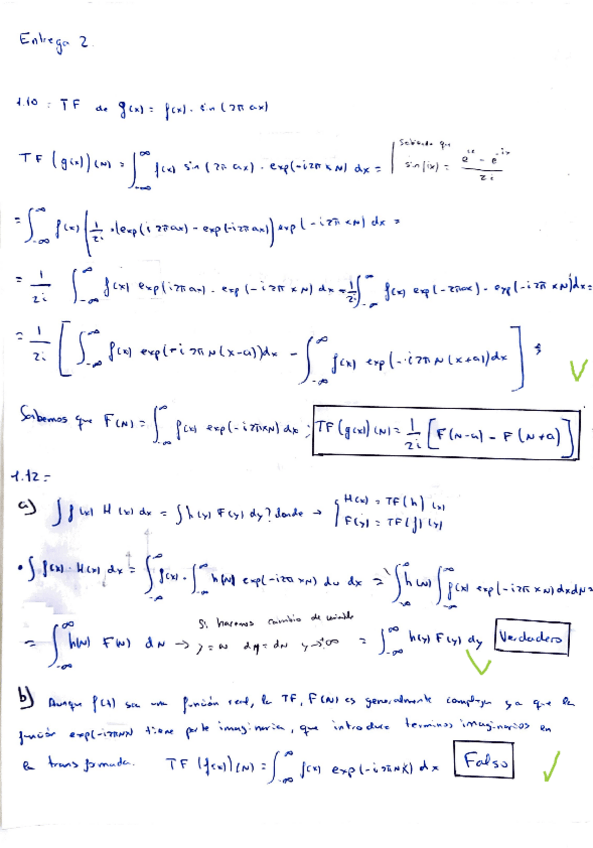 Entrega 2.
1.10 : TF de g(x) = f(x) · sin(2π ax)
TF (g(x))(N) = ∫_{-∞}^{∞} f(x) sin(2π ax) · exp(-i2π x N) dx = | Sabiendo que sin(ix) = (e^{ix} - e^{-ix})/2i
= ∫_{-∞}^{∞} f(x) [1/2i · (exp(i 2π ax) - exp(-i2π ax)] exp(-i2π xN) dx =
= 1/2i ∫_{-∞}^{∞} f(x) exp(i2π ax) · exp(-i2π xN) dx - 1/2i ∫_{-∞}^{∞} f(x) exp(-2π ax) · exp(-i2π xN) dx =
= 1/2i [∫_{-∞}^{∞} f(x) exp(-i 2π N(x-a)) dx - ∫_{-∞}^{∞} f(x) exp(-i2π N(x+a)) dx] ;
Sabemos que F(N) = ∫_{-∞}^{∞} f(x) exp(-i2π xN) dx ; TF(g(x))(N) = 1/2i [F(N-a) - F(N+a)]
1.12 =
a) ∫ f(x) H(x) dx = ∫ h(y) F(y) dy ? donde → { H(x) = TF(h)(x)
F(y) = TF(f)(y)
• ∫ f(x) · H(x) dx = ∫_{-∞}^{∞} f(x) · ∫_{-∞}^{∞} h(N) exp(-i2π xN) dN dx = ∫_{-∞}^{∞} h(N) ∫_{-∞}^{∞} f(x) exp(-i2π xN) dx dN =
Si hacemos cambio de variable
= ∫_{-∞}^{∞} h(N) F(N) dN → y = N dy = dN y→±∞ = ∫_{-∞}^{∞} h(y) F(y) dy Verdadero
b) Aunque f(t) sea una función real, la TF, F(N) es generalmente compleja ya que la
función exp(-i2πxN) tiene parte imaginaria, que introduce terminos imaginarios en
la transformada. TF (f(x))(N) = ∫_{-∞}^{∞} f(x) exp(-i2πNx) dx Falso